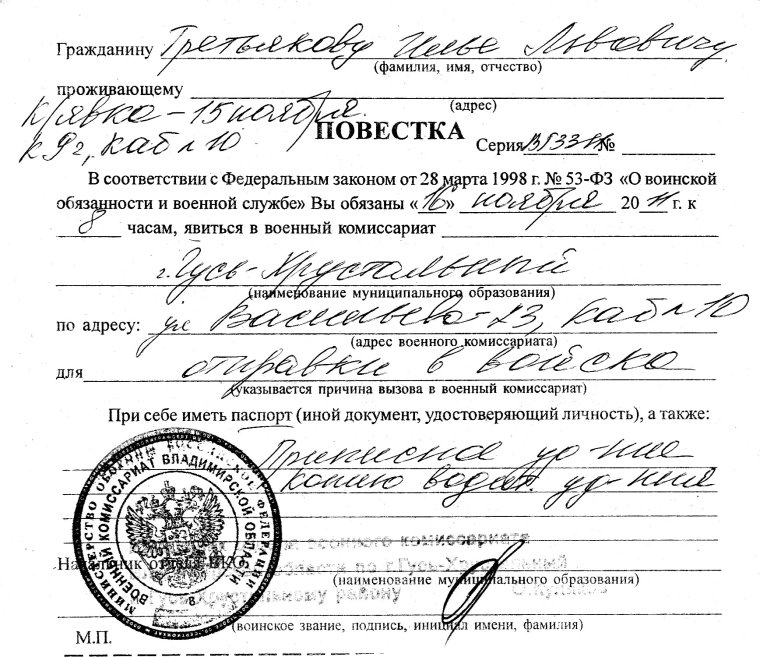 Гражданину Третьякову Илье Львовичу
(фамилия, имя, отчество)
проживающему
(адрес)
К/явка - 15 ноября
к 9 ч, каб №10
ПОВЕСТКА
Серия №
В соответствии с Федеральным законом от 28 марта 1998 г. № 53-ФЗ «О воинской
обязанности и военной службе» Вы обязаны «16» ноября 20 11 г. к
8 часам, явиться в военный комиссариат
г. Гусь-Хрустальный
(наименование муниципального образования)
по адресу: ул Васильева-23, каб №10
(адрес военного комиссариата)
для отправки в войска
(указывается причина вызова в военный комиссариат)
При себе иметь паспорт (иной документ, удостоверяющий личность), а также:
Приписное уд-ние
копию водит. уд-ния
МИНИСТЕРСТВО ОБОРОНЫ РОССИЙСКОЙ ФЕДЕРАЦИИ
ВОЕННЫЙ КОМИССАРИАТ ВЛАДИМИРСКОЙ ОБЛАСТИ
8
военного комиссариата
области по г.Гусь-Хрустальный
Начальник отдела ВКО
(наименование муниципального образования)
Гусь-Хрустальному району
(воинское звание, подпись, инициал имени, фамилия)
М.П.